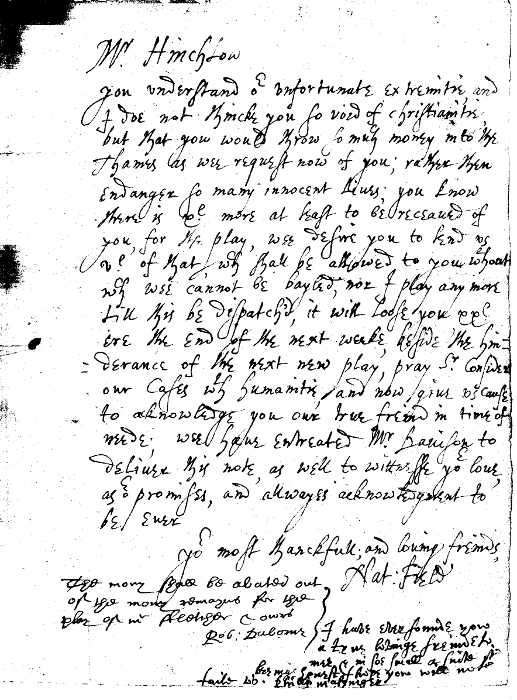 Mr. Hinchlow
you understand or unfortunate extremitie, and
I doe not thincke you so void of christianitie,
but that you would throw so much money into the
Thames as wee request now of you; rather then
endanger so many innocent lives; you know
there is xl. more at least to be receaved of
you, for the play, wee desire you to lend us
vl. of that, wch shall be allowed to you without
wch wee cannot be bayled, nor I play any more
till this be dispatch'd, it will loose you xxl.
ere the end of the next weeke, beside the hin=
=derance of the next new play, pray Sr. Consider
our Cases wth humanitie, and now give us cause
to acknowledge you our true freind in time of
neede; wee have entreated Mr. Davison to
deliver this note, as well to wittnesse yor love,
as or promises, and allwayes acknowledgment to
be ever
yor most thanckfull, and loving freinds,
Nat: Field
The mony shall be abated out
of the mony remayns for the
play of mr Fletcher & owrs
Rob: Daborne
I have ever founde you
a true lovinge freinde to
mee & in soe small a suite
beeinge honest I hope you will not
faile us.
Philip Massinger